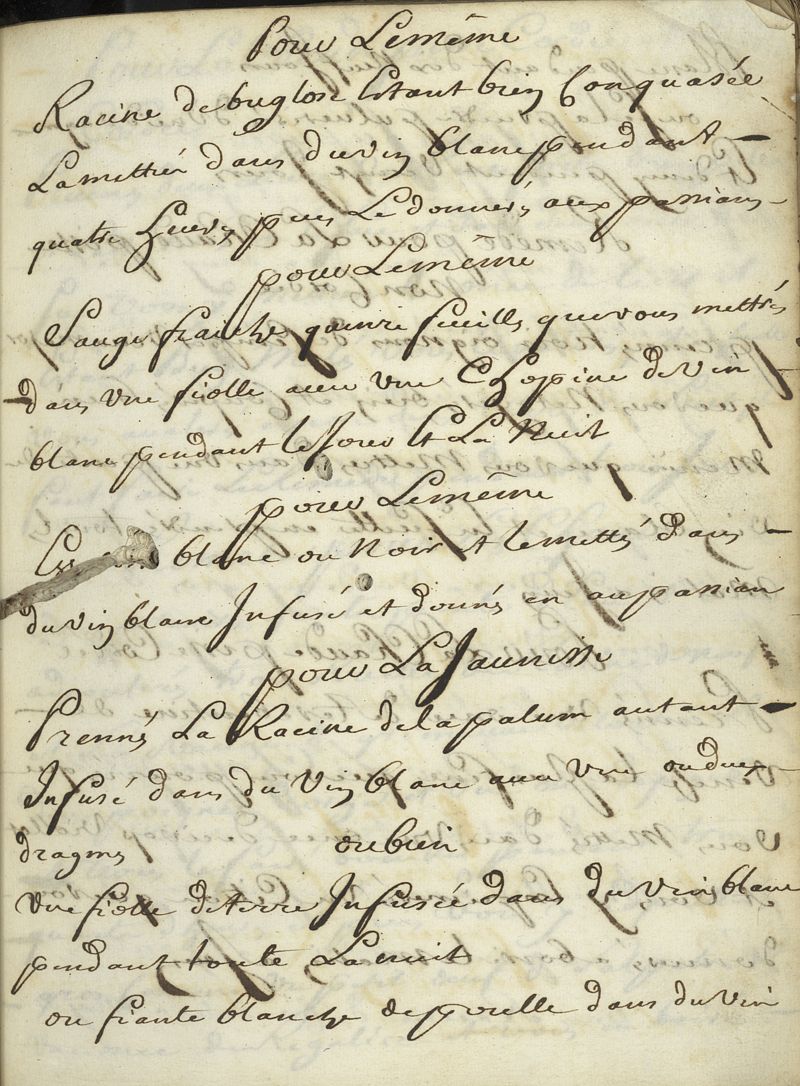 Pour Le même
Racine de buglose Estant bien Conquasée
La mettrés dans du vin blanc pendant
quatre heures puis Le donnerés aux passians
pour Le même
Sauge franche quinze feuilles que vous mettrés
dans une fiolle avec une Chopine de vin
blanc pendant le Jour Et La Nuit
pour Le même
blanc ou Noir et le mettés dans
du vin blanc Infusé et donnés en au passian
pour La Jaunisse
Prennés La Racine de la autant
Infusé dans du Vin blanc avec une ou deux
dragmes ou bien
une fiolle de terre Infusée dans du vin blanc
pendant toute La nuit
ou fiante blanche de poulle dans du vin